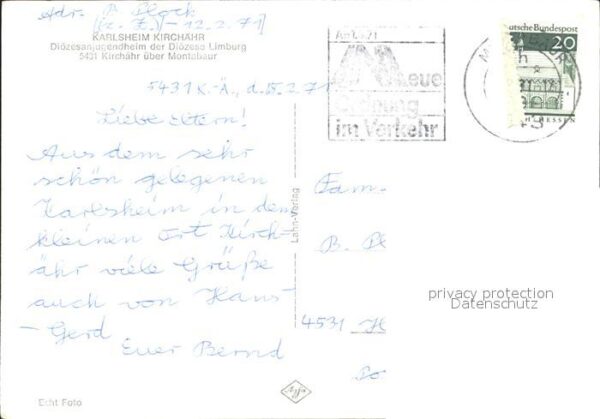 Adr. A. Plock
(z. Z.) - 12.2.71
KARLSHEIM KIRCHÄHR
Diözesanjugendheim der Diözese Limburg
5431 Kirchähr über Montabaur
5431 K.-Ä., d. 5.2.71
Liebe Eltern!
Aus dem sehr
schön gelegenen
Karlsheim in dem
kleinen Ort Kirch-
ähr viele Grüße
auch von Hans
-Gerd
Euer Bernd
Echt Foto
Lahn-Verlag
Neue
Ordnung
im Verkehr
Deutsche Bundespost
20
HESSEN
Fam.
B. Pl
4531 H
privacy protection
Datenschutz